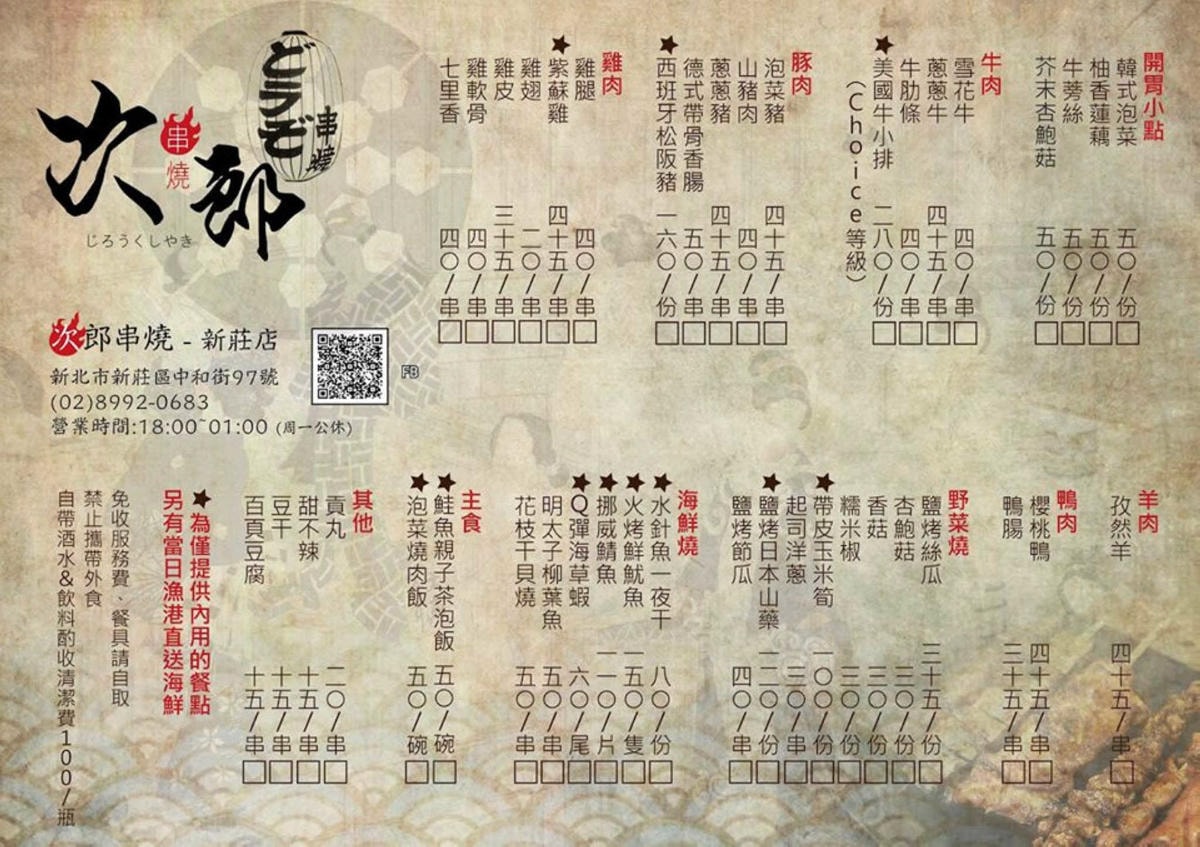 開胃小點
韓式泡菜 五〇/份□
柚香蓮藕 五〇/份□
牛蒡絲 五〇/份□
芥末杏鮑菇 五〇/份□
牛肉
雪花牛 四〇/串□
蔥蔥牛 四十五/串□
牛肋條 四〇/串□
★美國牛小排 二八〇/份□
(Choice等級)
豚肉
泡菜豬 四十五/串□
山豬肉 四〇/串□
蔥蔥豬 四十五/串□
德式帶骨香腸 五〇/串□
★西班牙松阪豬 一六〇/份□
雞肉
雞腿 四〇/串□
★紫蘇雞 四十五/串□
雞翅 二〇/串□
雞皮 三十五/串□
雞軟骨 四〇/串□
七里香 四〇/串□
どうぞ
串燒
次郎
串燒
じろうくしやき
次郎串燒 - 新莊店
新北市新莊區中和街97號
(02)8992-0683
營業時間:18:00~01:00 (周一公休)
FB
羊肉
孜然羊 四十五/串□
鴨肉
櫻桃鴨 四十五/串□
鴨腸 三十五/串□
野菜燒
鹽烤絲瓜 三十五/份□
杏鮑菇 三〇/份□
香菇 三〇/份□
糯米椒 三〇/份□
★帶皮玉米筍 一〇〇/份□
起司洋蔥 三〇/串□
★鹽烤日本山藥 一二〇/份□
鹽烤節瓜 四〇/串□
海鮮燒
★水針魚一夜干 八〇/份□
★火烤鮮魷魚 一五〇/隻□
★挪威鯖魚 一一〇/片□
★Q彈海草蝦 六〇/尾□
明太子柳葉魚 五〇/串□
花枝干貝燒 五〇/串□
主食
★鮭魚親子茶泡飯 五〇/碗□
★泡菜燒肉飯 五〇/碗□
其他
貢丸 二〇/串□
甜不辣 十五/串□
豆干 十五/串□
百頁豆腐 十五/串□
★為僅提供內用的餐點
另有當日漁港直送海鮮
免收服務費、餐具請自取
禁止攜帶外食
自帶酒水&飲料酌收清潔費100/瓶